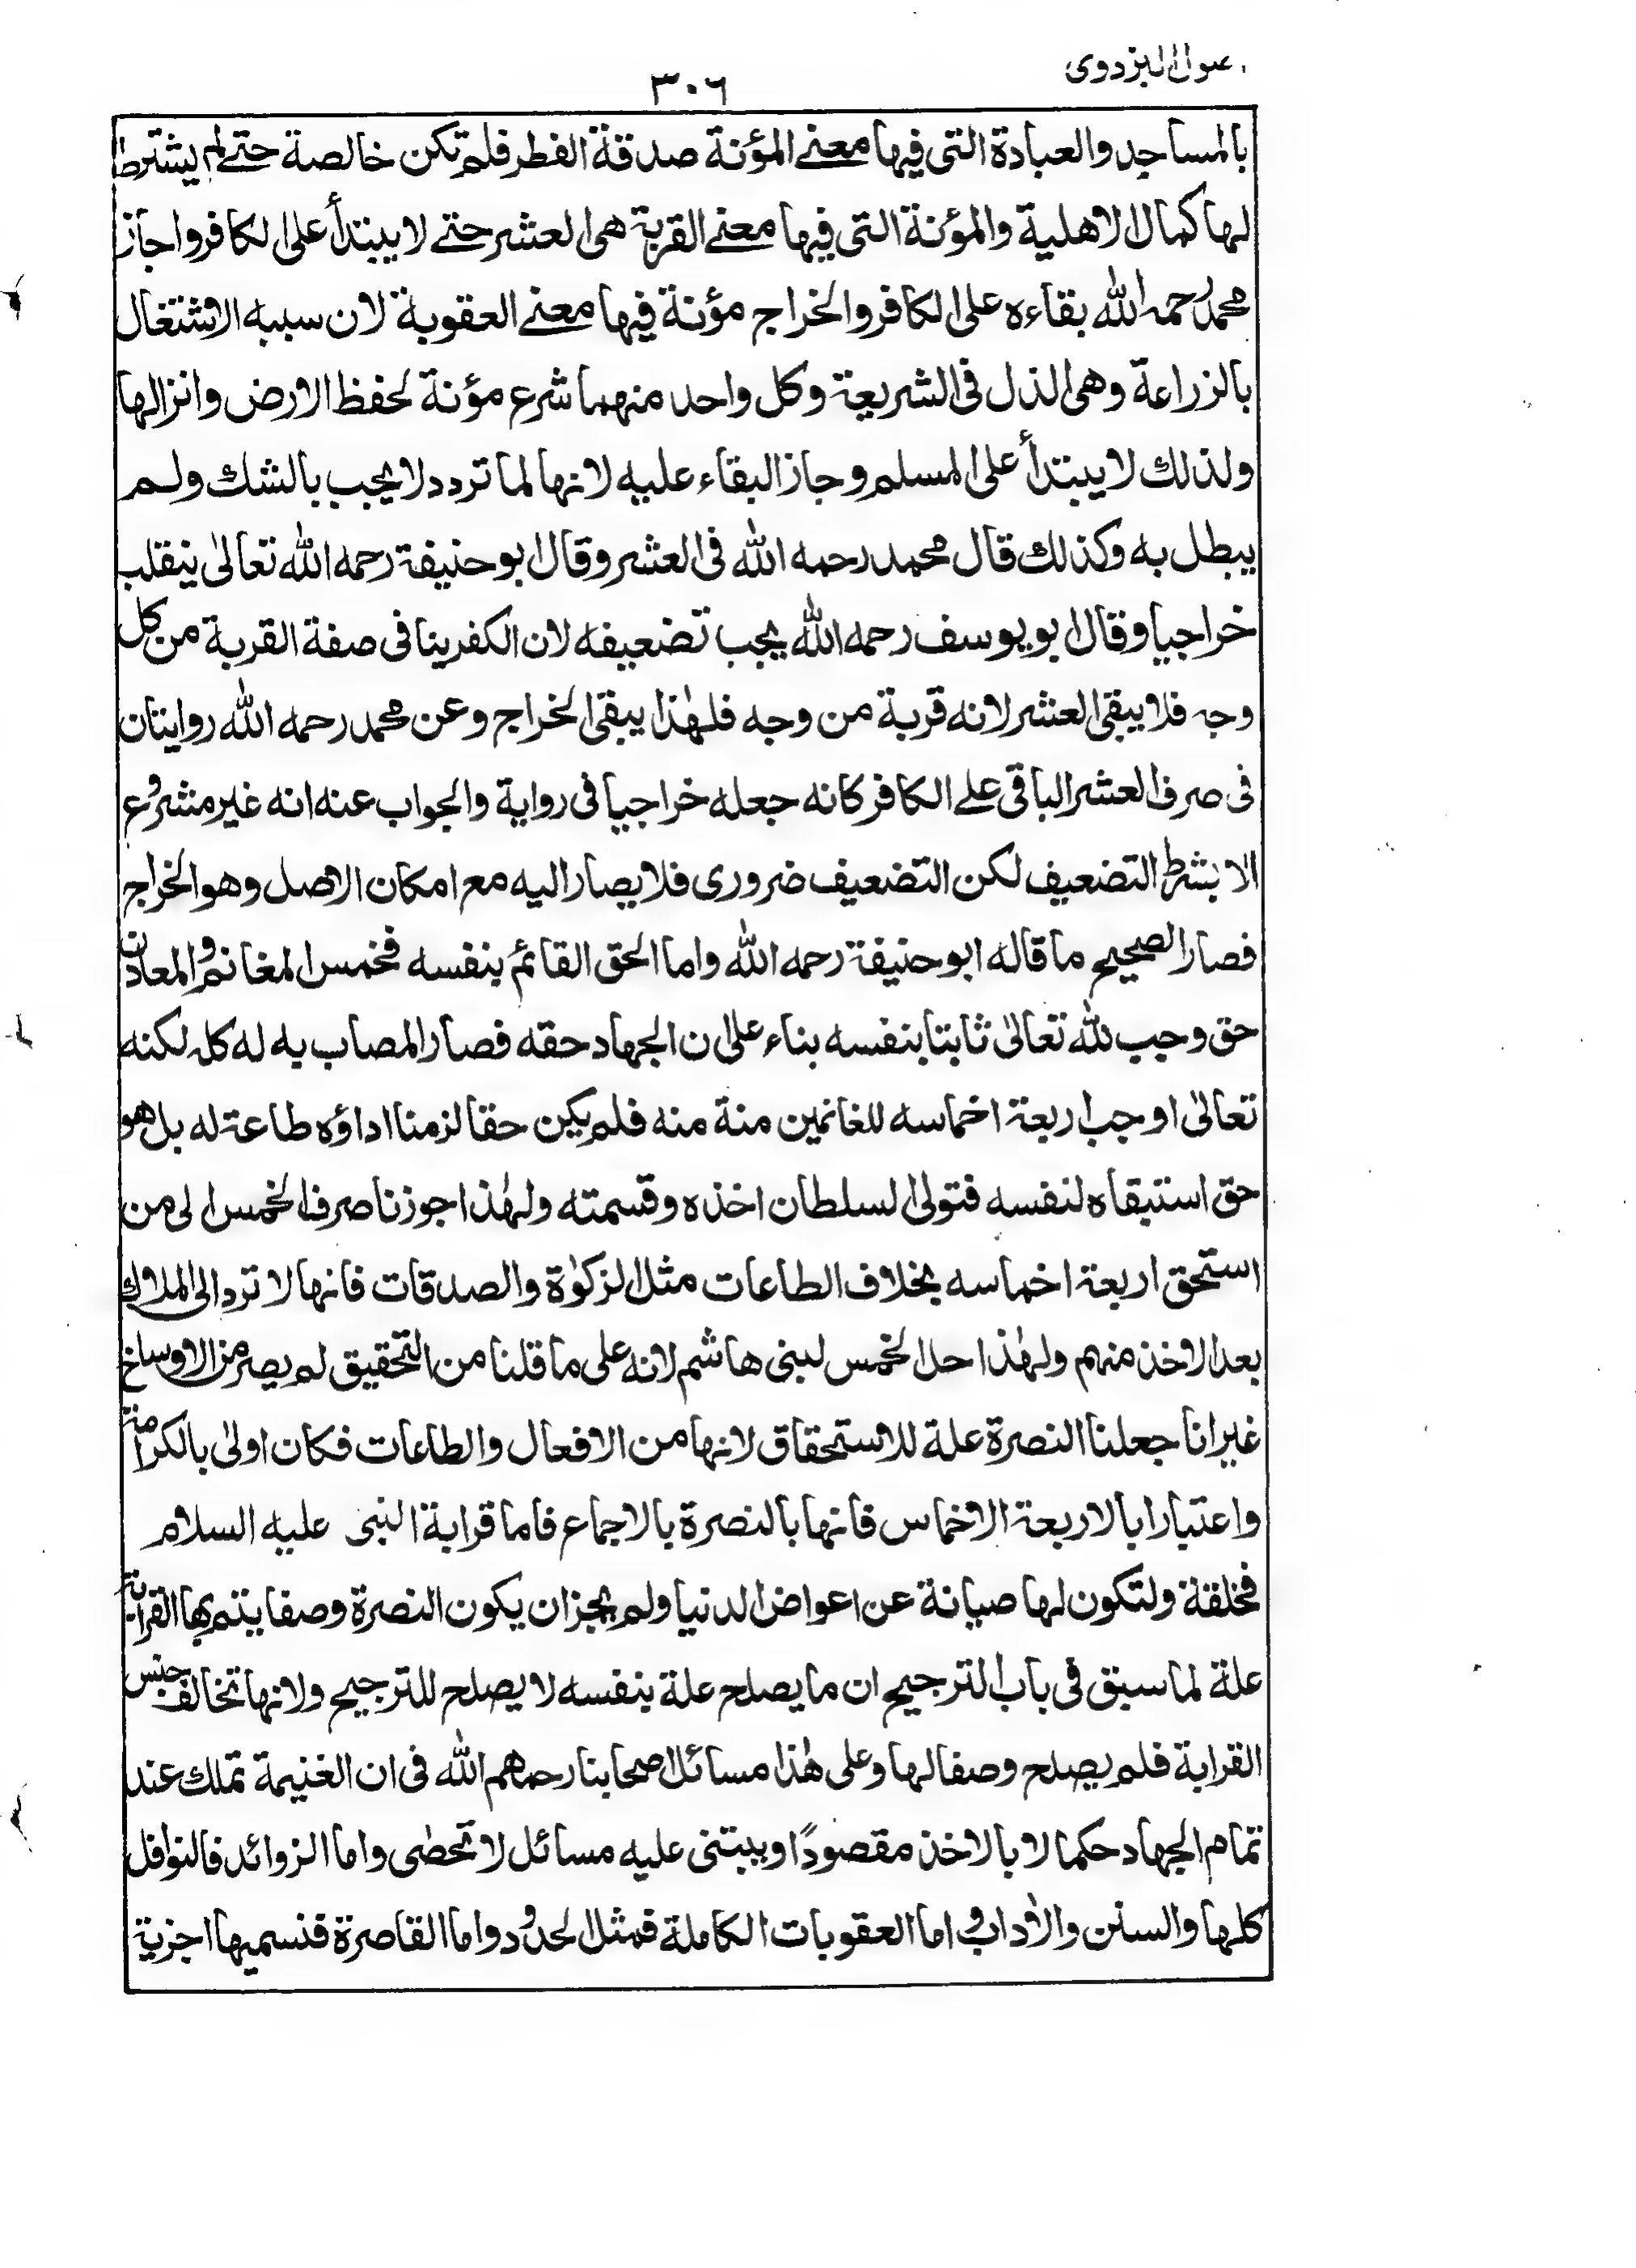 اصول البزدوى
٣٠٦
بالمساجد والعبادة التى فيها معنے المؤنة صدقة الفطر فلم تكن خالصة حتے لم يشترط
لها كمال الاهلية والمؤنة التى فيها معنے القربة هى العشر حتے لا يبتدأ على الكافر واجاز
محمد رحمه الله بقاءه على الكافر والخراج مؤنة فيها معنے العقوبة لان سببه الاشتغال
بالزراعة وهى الذل فى الشريعة وكل واحد منهما شرع مؤنة لحفظ الارض وانزالها
ولذلك لا يبتدأ على المسلم وجاز البقاء عليه لانها لما تردد لا يجب بالشك ولم
يبطل به وكذلك قال محمد رحمه الله فى العشر وقال ابو حنيفة رحمه الله تعالىٰ ينقلب
خراجيا وقال ابو يوسف رحمه الله يجب تضعيفه لان الكفر ينا فى صفة القربة من كل
وجه فلا يبقى العشر لانه قربة من وجه فلهٰذا يبقى الخراج وعن محمد رحمه الله روايتان
فى صرف العشر الباقى علے الكافر كانه جعله خراجيا فى رواية والجواب عنه انه غير مشروع
الا بشرط التضعيف لكن التضعيف ضرورى فلا يصار اليه مع امكان الاصل وهو الخراج
فصار الصحيح ما قاله ابو حنيفة رحمه الله واما الحق القائم بنفسه فخمس المغانم والمعادن
حق وجب لله تعالىٰ ثابتا بنفسه بناء على ان الجهاد حقه فصار المصاب به له كله لكنه
تعالىٰ اوجب اربعة اخماسه للغانمين منة منه فلم يكن حقا لزمنا اداؤه طاعة له بل هو
حق استبقاه لنفسه فتولى السلطان اخذه وقسمته ولهٰذا جوزنا صرف الخمس الى من
استحق اربعة اخماسه بخلاف الطاعات مثل الزكوٰة والصدقات فانها لا ترد الى الملاك
بعد الاخذ منهم ولهٰذا حل الخمس لبنى هاشم لانه على ما قلنا من التحقيق لم يصر من الاوساخ
غير انا جعلنا النصرة علة للاستحقاق لانها من الافعال والطاعات فكان اولىٰ بالكرامة
واعتبارا بالاربعة الاخماس فانها بالنصرة بالاجماع فاما قرابة النبى عليه السلام
فخلقة ولتكون لها صيانة عن اعواض الدنيا ولم يجز ان يكون النصرة وصفا يتم بها القرابة
علة لما سبق فى باب الترجيح ان ما يصلح علة بنفسه لا يصلح للترجيح ولانها تخالف جنس
القرابة فلم يصلح وصفا لها وعلى هٰذا مسائل اصحابنا رحمهم الله فى ان الغنيمة تملك عند
تمام الجهاد حكما لا بالاخذ مقصودًا ويبتنى عليه مسائل لا تحصٰى واما الزوائد فالنوافل
كلها والسنن والاٰداب واما العقوبات الكاملة فمثل الحدود واما القاصرة فنسميها اجزية